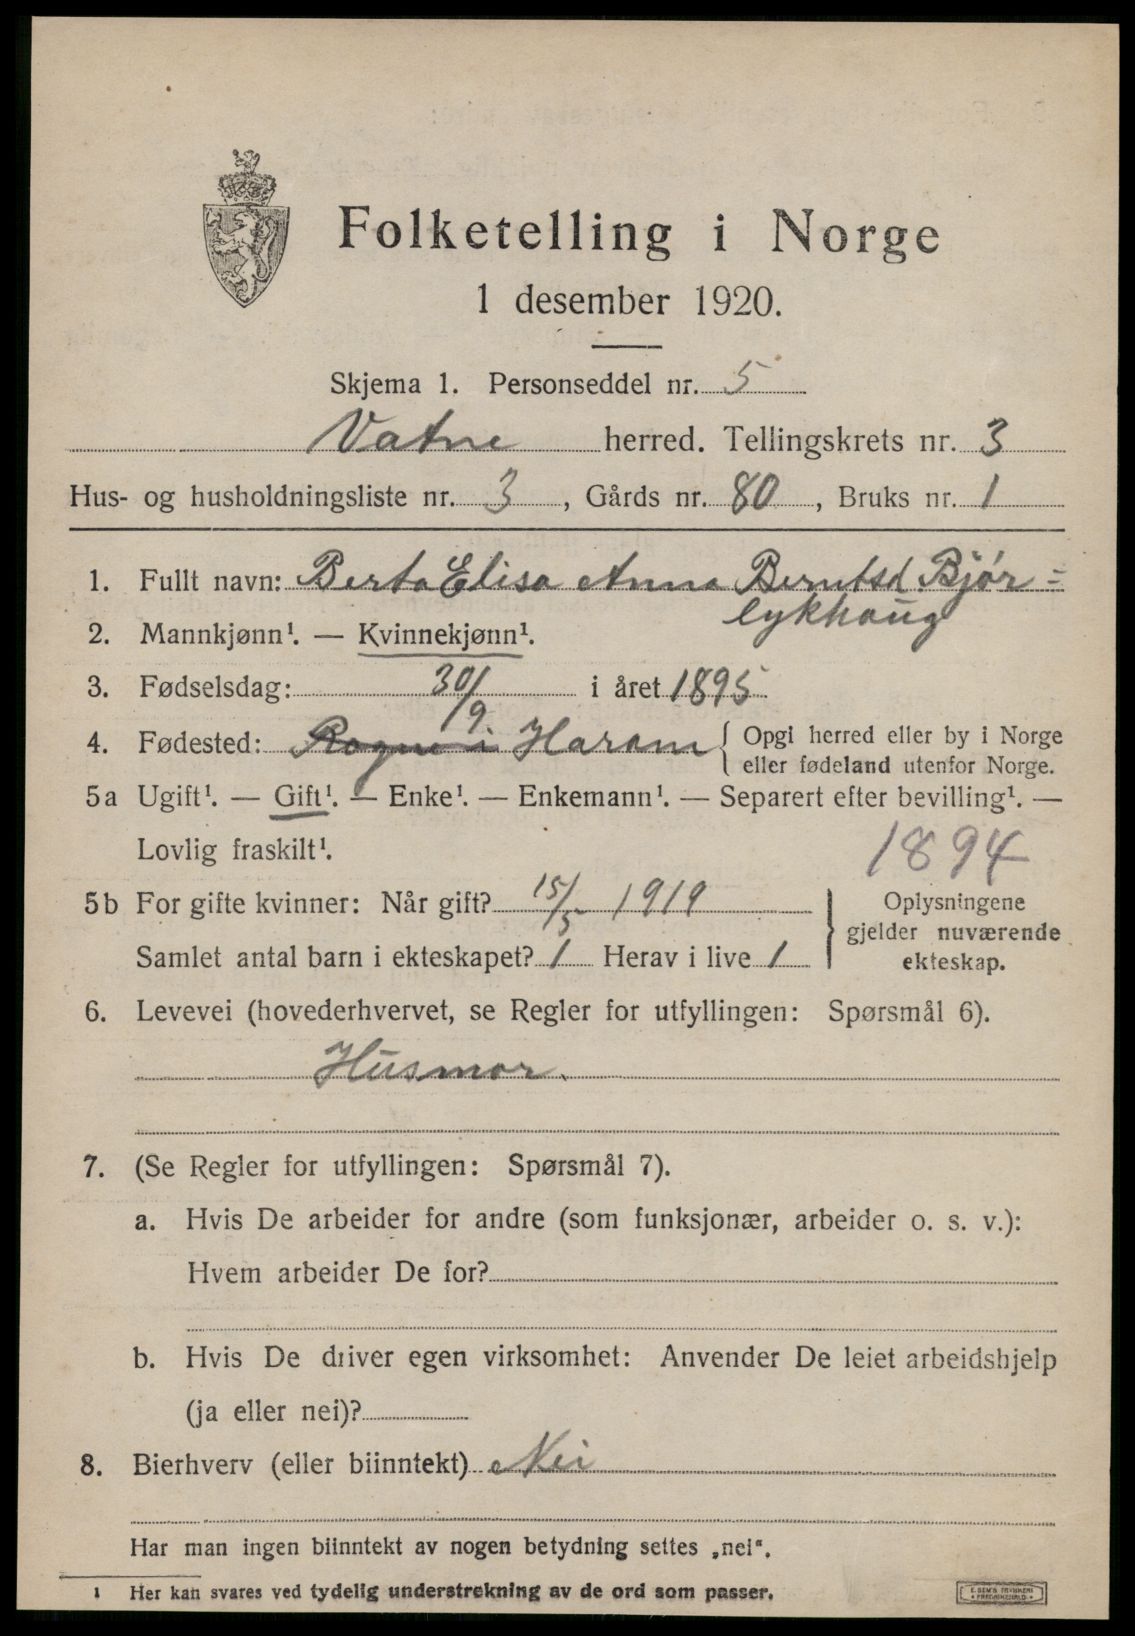 Folketelling i Norge
1 desember 1920.
Skjema 1. Personseddel nr. 5
Vatne herred. Tellingskrets nr. 3
Hus- og husholdningsliste nr. 3, Gårds nr. 80, Bruks nr. 1
1. Fullt navn: Berta Elisa Anna Berntsd. Bjør=
lykhaug
2. Mannkjønn¹. — Kvinnekjønn¹.
3. Fødselsdag: 30/9 i året 1895
4. Fødested: Rogne i Haram { Opgi herred eller by i Norge
eller fødeland utenfor Norge.
5a Ugift¹. — Gift¹. — Enke¹. — Enkemann¹. — Separert efter bevilling¹. —
Lovlig fraskilt¹. 1894
5b For gifte kvinner: Når gift? 15/5 1919 } Oplysningene
gjelder nuværende
Samlet antal barn i ekteskapet? 1 Herav i live 1 ekteskap.
6. Levevei (hovederhvervet, se Regler for utfyllingen: Spørsmål 6).
Husmor.
7. (Se Regler for utfyllingen: Spørsmål 7).
a. Hvis De arbeider for andre (som funksjonær, arbeider o. s. v.):
Hvem arbeider De for?
b. Hvis De driver egen virksomhet: Anvender De leiet arbeidshjelp
(ja eller nei)?
8. Bierhverv (eller biinntekt) Nei
Har man ingen biinntekt av nogen betydning settes „nei“.
1 Her kan svares ved tydelig understrekning av de ord som passer.
E. SEM'S TRYKKERI
FREDRIKSHALD